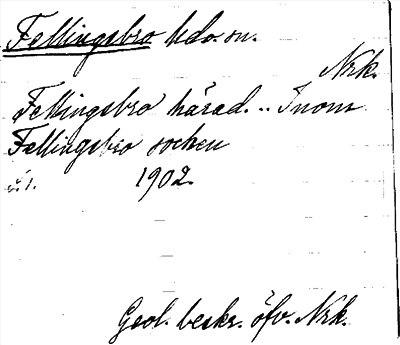 Fellingsbro hdo. sn.
Nrk.
Fellingsbro härad. .. Inom
Fellingsbro socken
1902.
Geol. beskr. öfv. Nrk.